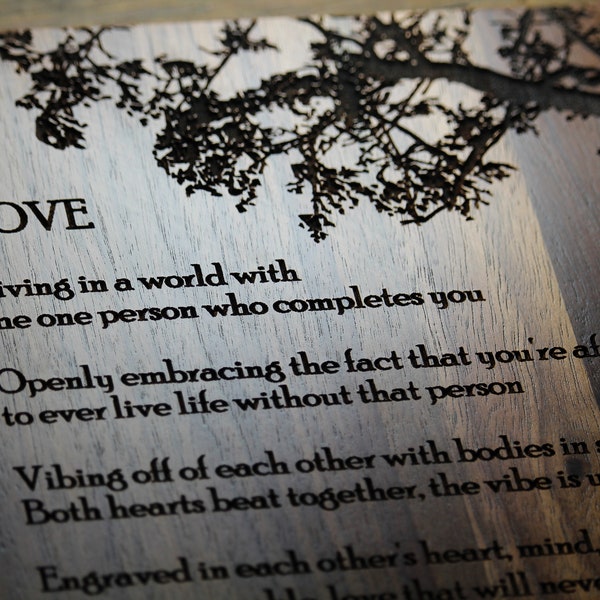 OVE
iving in a world with
he one person who completes you
Openly embracing the fact that you're af
to ever live life without that person
Vibing off of each other with bodies in s
Both hearts beat together, the vibe is u
Engraved in each other's heart, mind,
love that will never